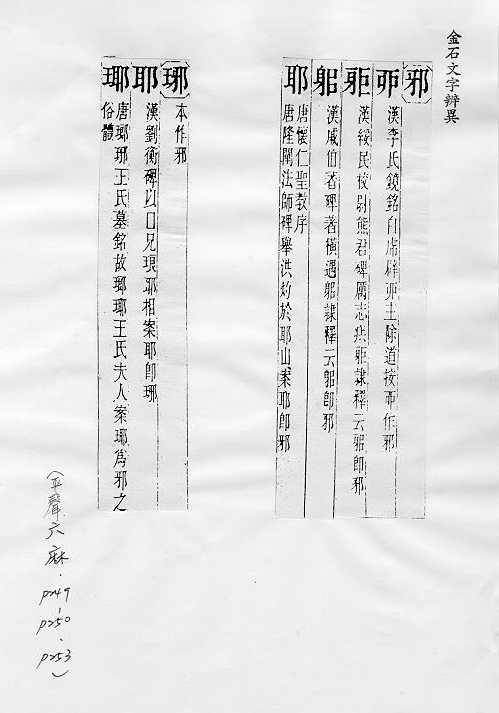 金石文字辨異
邪
漢李氏鏡銘白虎辟
主除道按
作邪
漢綏民校尉熊君碑厲志疾
隸釋云
即邪
漢戚伯著碑著橫遇躳隸釋云躳即邪
耶
唐懷仁聖教序
唐隆闡法師碑舉洪灼於耶山案耶即邪
琊
本作邪
耶
漢劉衡碑以囗兄琅耶相案耶即琊
瑘
唐瑯琊王氏墓銘故瑯瑘王氏夫人案瑘爲邪之
俗體
(平聲六麻．
p249，
p250．
p253)